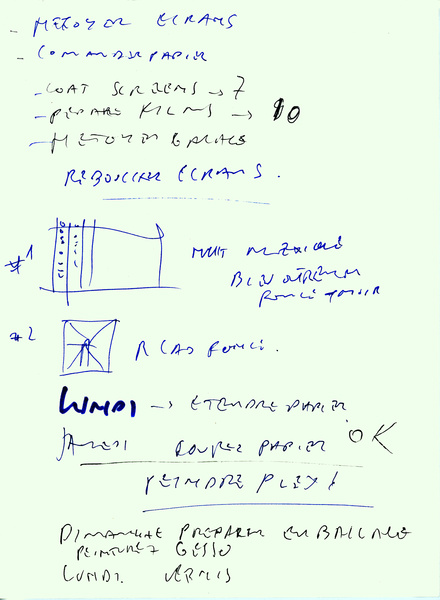 - NETOYER ECRANS
- COMMANDER PAPIER
- COAT SCREENS → 7
- PEPARE FILMS → 10
- NETOYER
REBOUCHER ECRANS.
#1
NUIT
BLEU OUTREMER
FONCÉ
#2
ROAD FONCÉ.
LUNDI → ETENDRE PAPIER
JAUEDI COUPER PAPIER OK
PEINDRE PLEXI
DIMANCHE PREPARER EMBALLAGE
PEINTUREZ GESSO
LUNDI. VERNIS